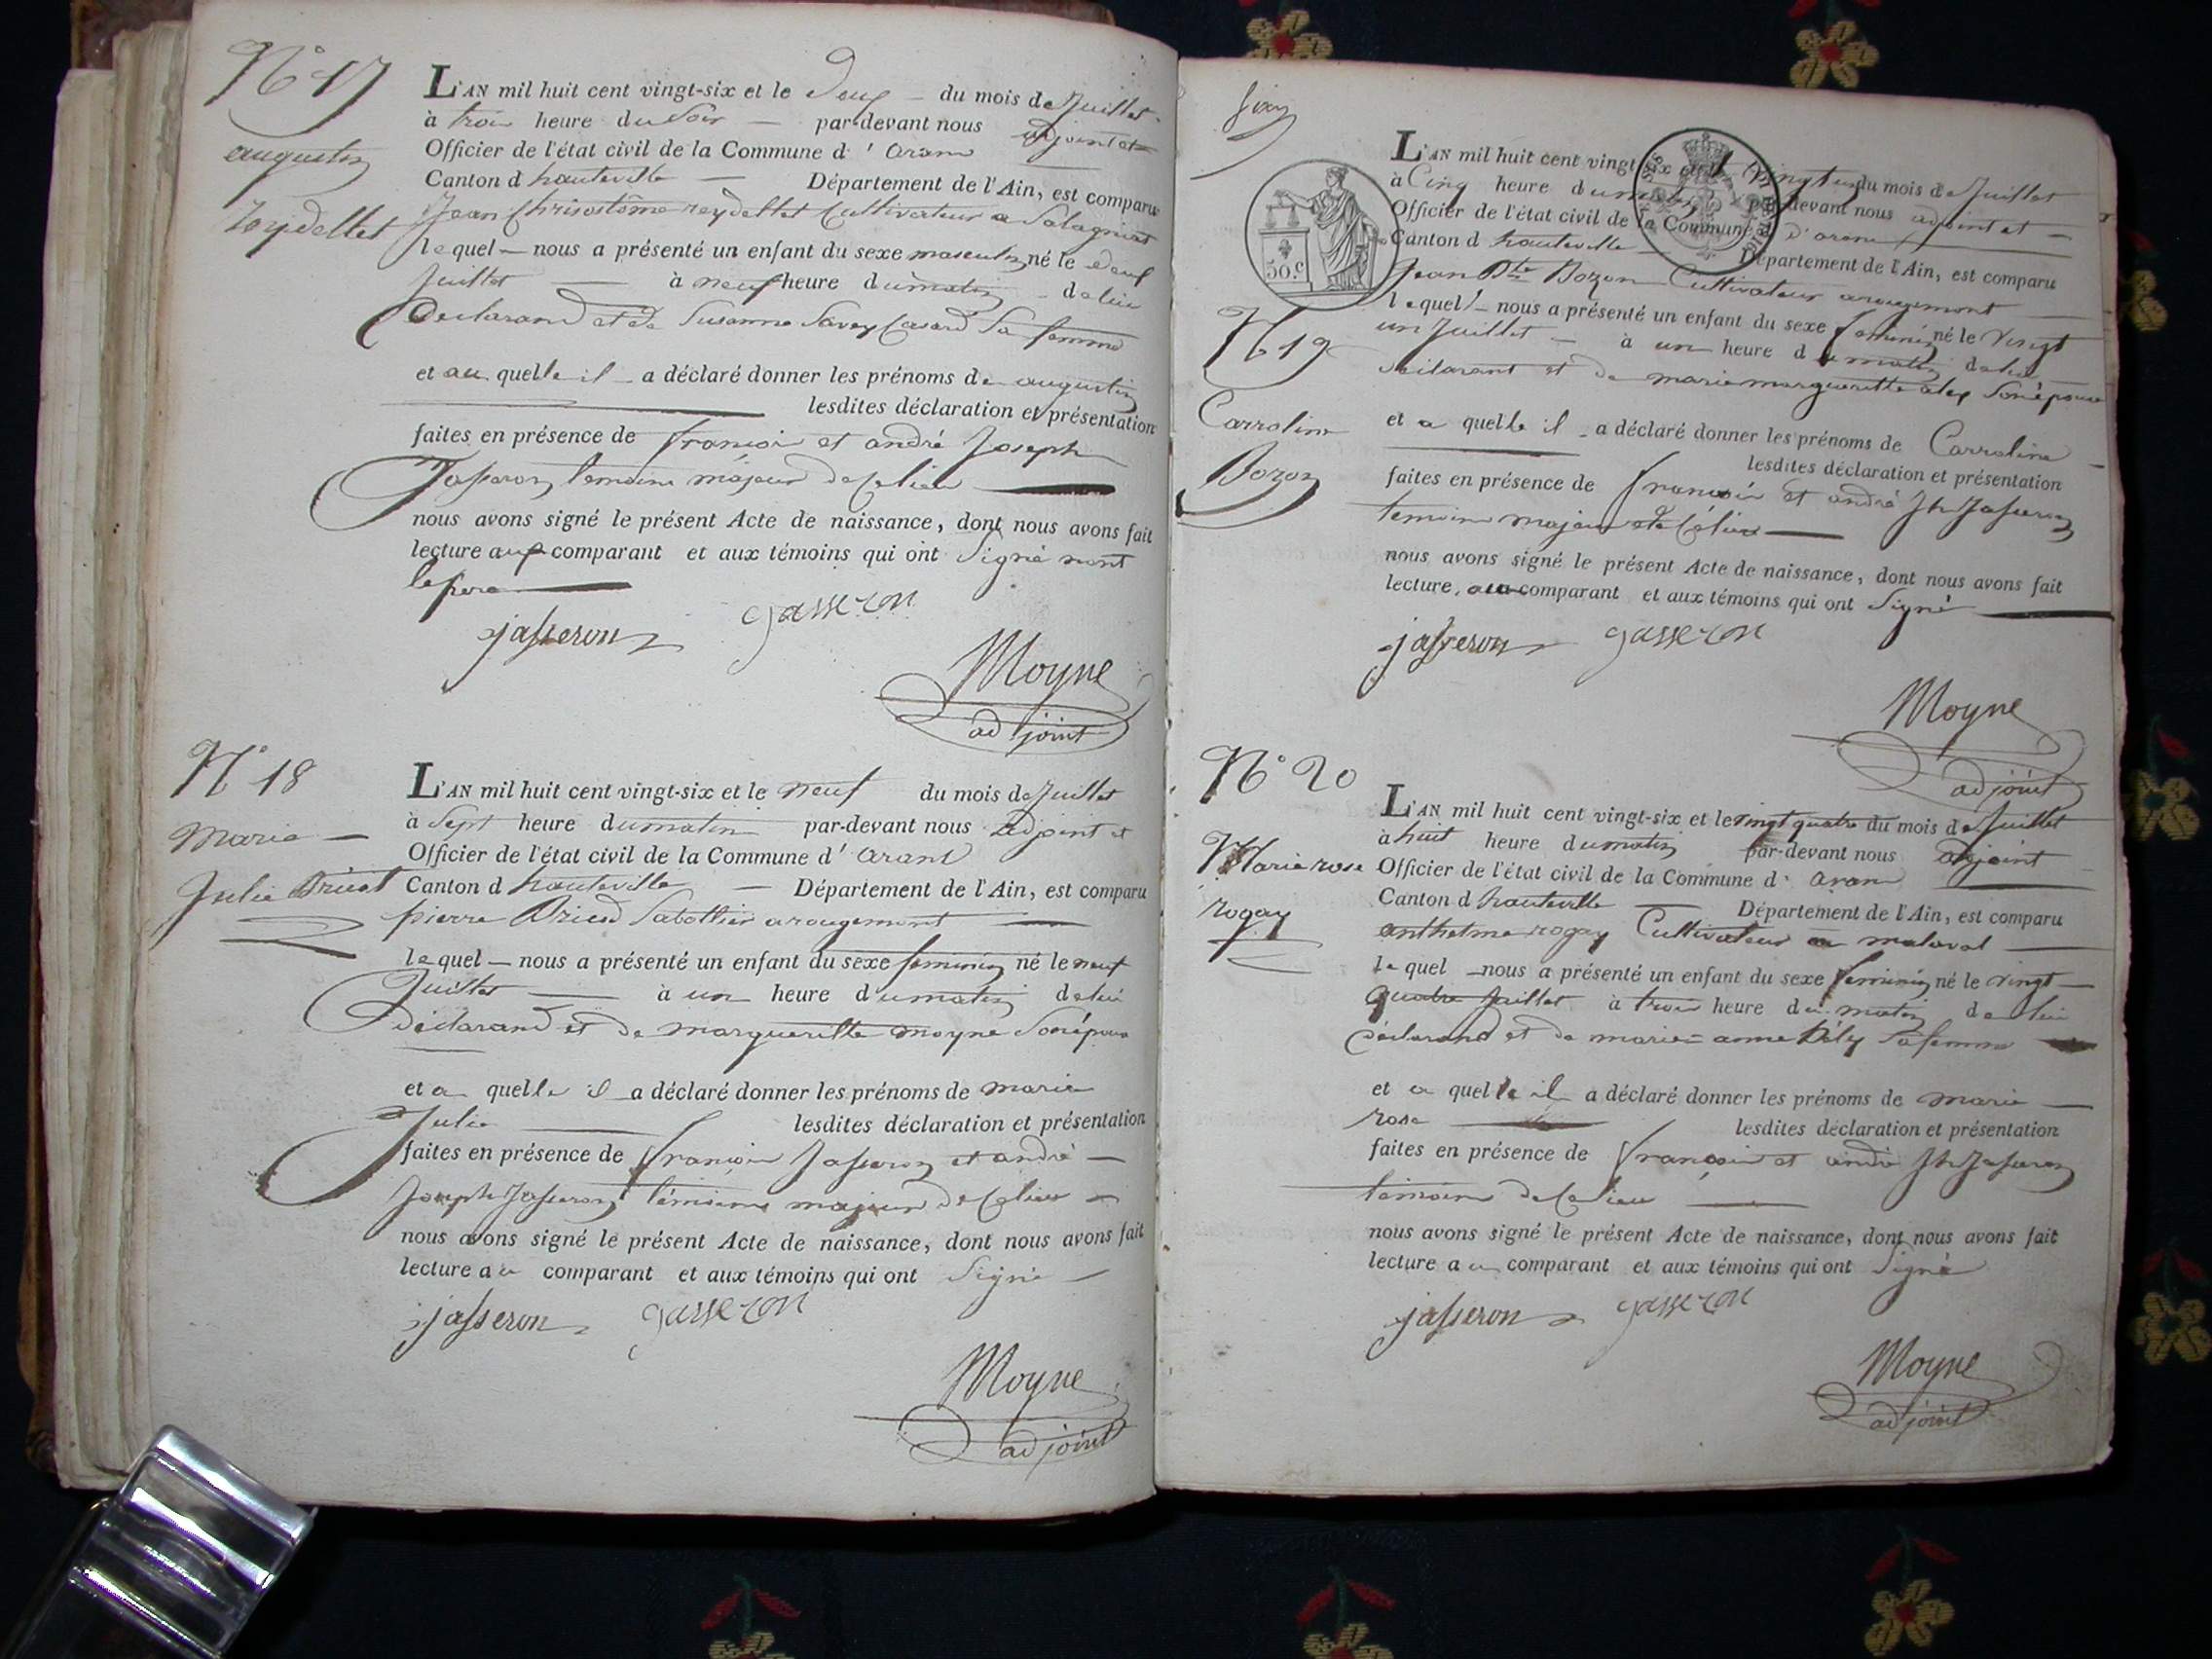 N° 17
augustin
reydellet
L'AN mil huit cent vingt-six et le Deux du mois de Juillet
à trois heure du Soir par-devant nous adjoint et
Officier de l'état civil de la Commune d' aranc
Canton d hauteville Département de l'Ain, est comparu
Jean Chrisostôme reydellet Cultivateur a
lequel nous a présenté un enfant du sexe masculin né le deux
Juillet à neuf heure du matin de lui
Declarand et de Susanne Savey Casard Sa femme
et au quelle il a déclaré donner les prénoms de augustin
lesdites déclaration et présentation
faites en présence de françois et andré Joseph
Jasseron temoins majeur de Ce lieu
nous avons signé le présent Acte de naissance, dont nous avons fait
lecture aux comparant et aux témoins qui ont Signé nont
le pere
jasseron jasseron
Moyne
adjoint
N° 18
Marie
Julie Drieod
L'AN mil huit cent vingt-six et le neuf du mois de Juillet
à Sept heure du matin par-devant nous adjoint et
Officier de l'état civil de la Commune d' aranc
Canton d hauteville Département de l'Ain, est comparu
pierre Sabottier a rougemont
lequel nous a présenté un enfant du sexe feminin né le neuf
Juillet à un heure du matin de lui
déclarand et de margueritte moyne Son épouse
et a quelle il a déclaré donner les prénoms de marie
Julie lesdites déclaration et présentation
faites en présence de françois Jasseron et andré
Joseph Jasseron témoins majeur de Ce lieu
nous avons signé le présent Acte de naissance, dont nous avons fait
lecture au comparant et aux témoins qui ont Signé
jasseron jasseron
Moyne
adjoint
50.c
N 19
Carroline
Bozon
L'AN mil huit cent vingt-six et le vingt un du mois de Juillet
à Cinq heure du par-devant nous adjoint et
Officier de l'état civil de la Commune d'aranc
Canton d hauteville Département de l'Ain, est comparu
Jean Bte Bozon Cultivateur a rougemont
lequel nous a présenté un enfant du sexe feminin né le vingt
un Juillet à un heure du matin de lui
déclarant et de marie margueritte Son épouse
et a quelle il a déclaré donner les prénoms de Carroline
lesdites déclaration et présentation
faites en présence de françois et andré Jh Jasseron
temoins majeur de Ce lieu
nous avons signé le présent Acte de naissance, dont nous avons fait
lecture, au comparant et aux témoins qui ont Signé
jasseron jasseron
Moyne
adjoint
N° 20
Marie rose
rogay
L'AN mil huit cent vingt-six et le vingt quatre du mois de Juillet
à huit heure du matin par-devant nous adjoint
Officier de l'état civil de la Commune d' aranc
Canton d hauteville Département de l'Ain, est comparu
anthelme rogay Cultivateur a malaval
lequel nous a présenté un enfant du sexe feminin né le vingt
quatre Juillet à trois heure du matin de lui
déclarand et de marie=anne Sa femme
et a quelle il a déclaré donner les prénoms de marie
rose lesdites déclaration et présentation
faites en présence de françois et andré Jh Jasseron
témoins de Ce lieu
nous avons signé le présent Acte de naissance, dont nous avons fait
lecture au comparant et aux témoins qui ont Signé
jasseron jasseron
Moyne
adjoint